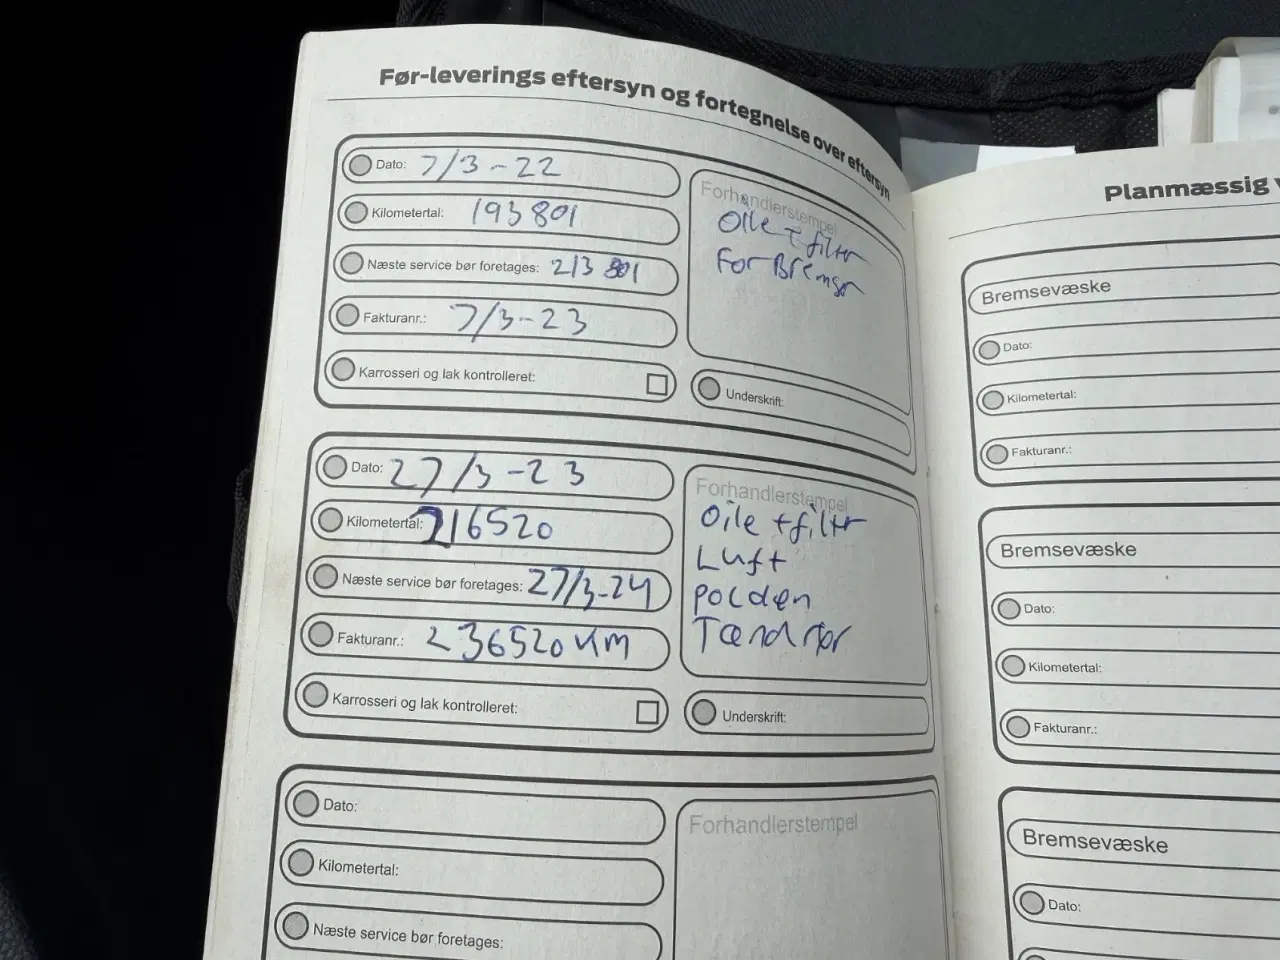 Før-leverings eftersyn og fortegnelse over eftersyn
Dato: 7/3-22
Kilometertal: 193801
Næste service bør foretages: 213 801
Fakturanr.: 7/3-23
Karrosseri og lak kontrolleret:
Forhandlerstempel
Oile + filtr
For Bremsr
Underskrift:
Dato: 27/3-23
Kilometertal: 216520
Næste service bør foretages: 27/3-24
Fakturanr.: 236520 KM
Karrosseri og lak kontrolleret:
Forhandlerstempel
Oile + filtr
Luft
Polden
Tændrør
Underskrift:
Dato:
Kilometertal:
Næste service bør foretages:
Forhandlerstempel
Planmæssig
Bremsevæske
Dato:
Kilometertal:
Fakturanr.:
Bremsevæske
Dato:
Kilometertal:
Fakturanr.:
Bremsevæske
Dato: